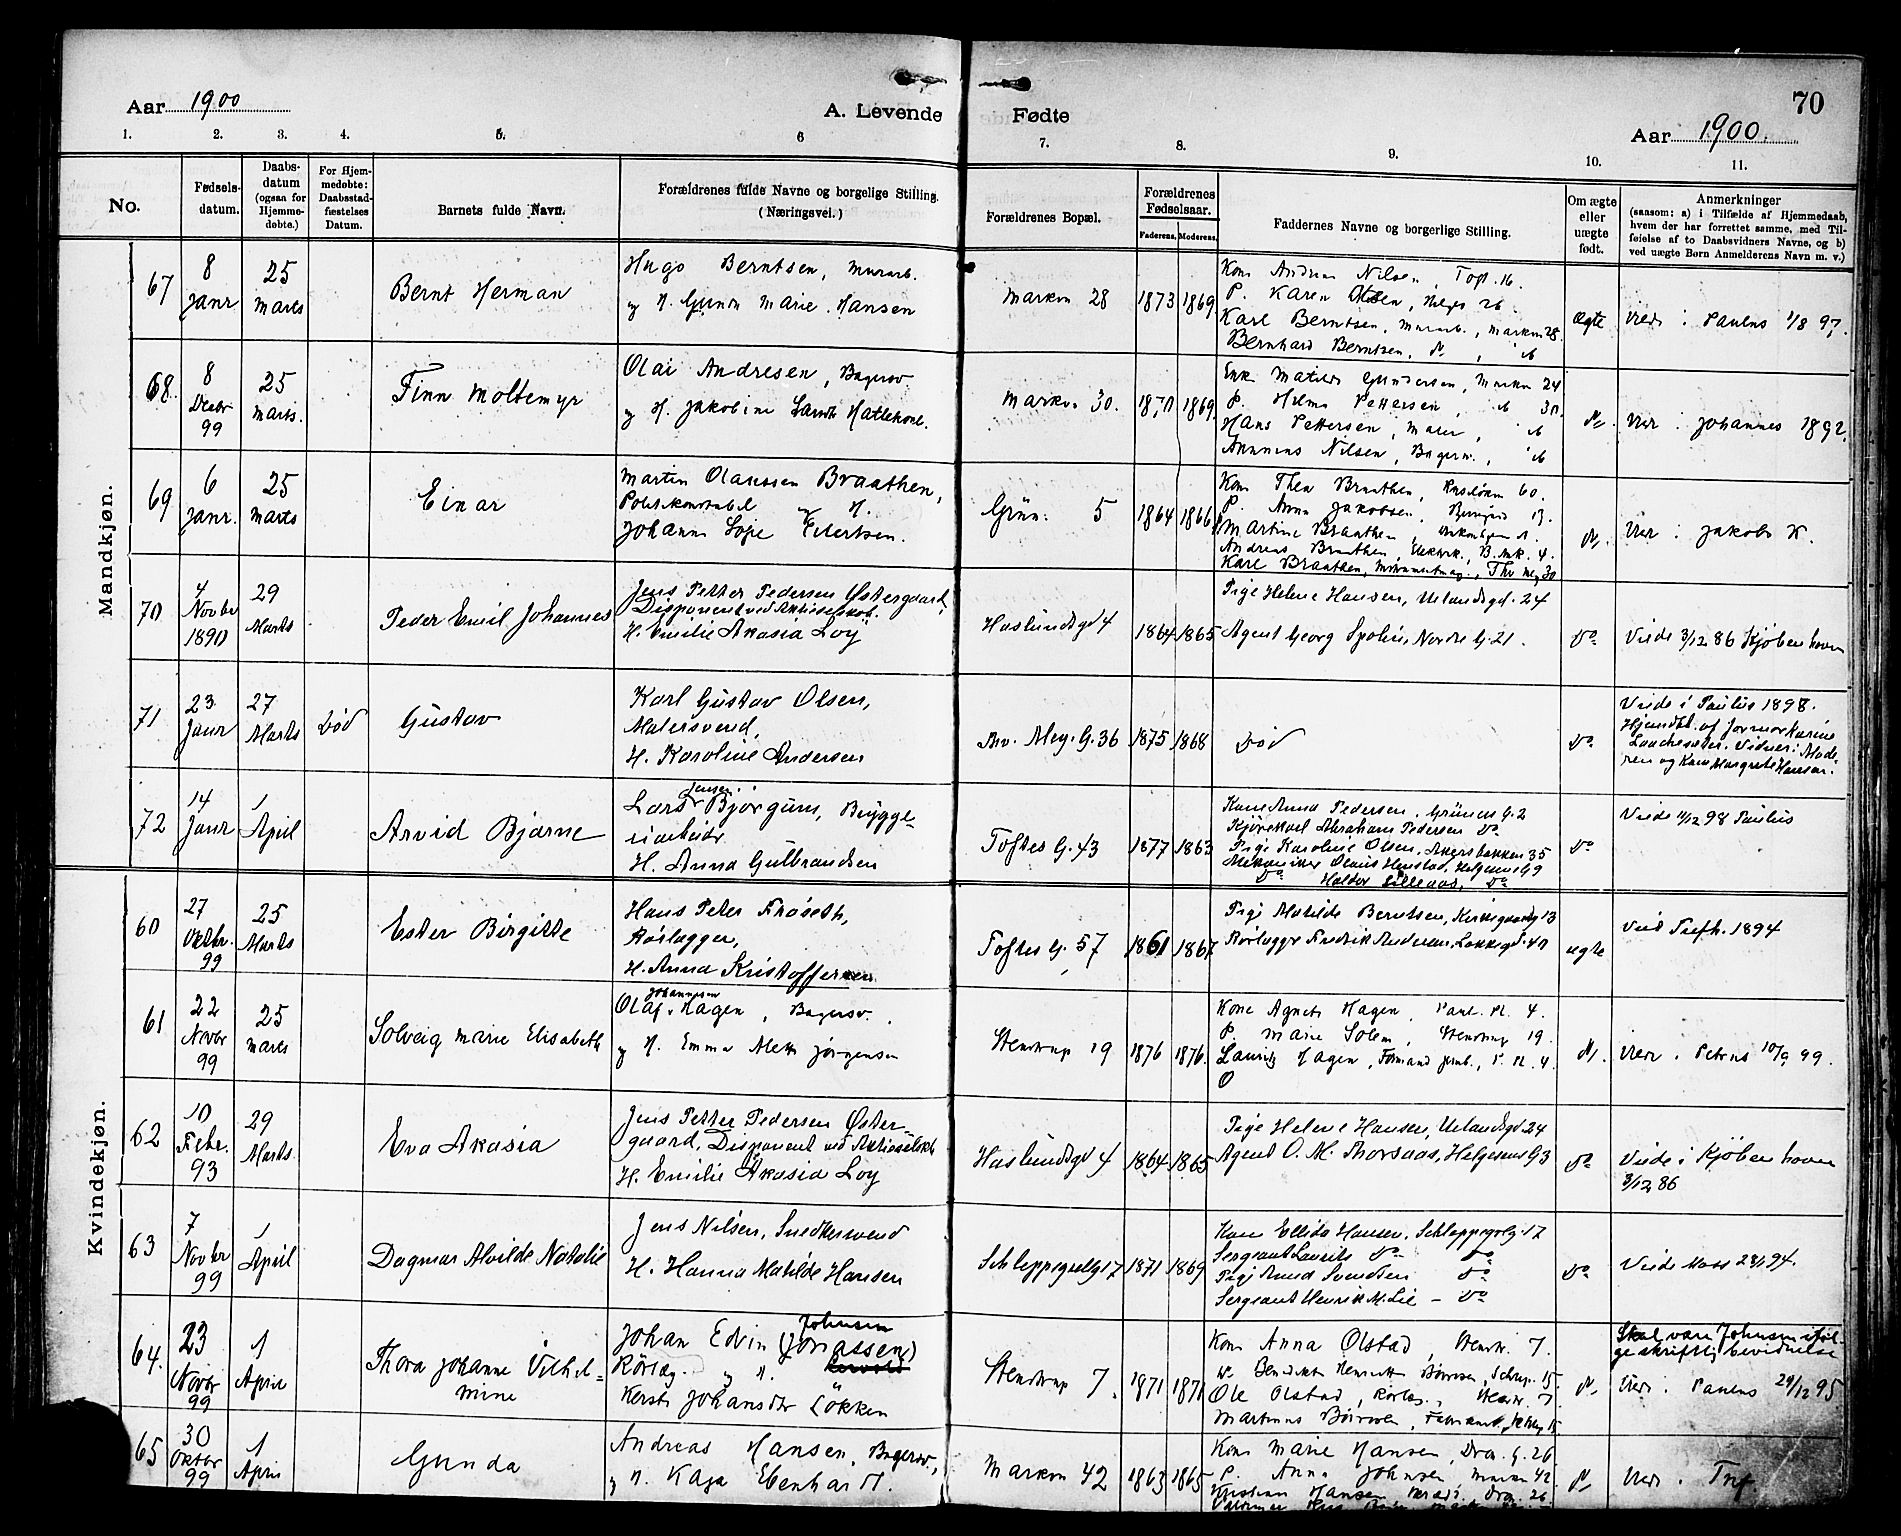 Aar 1900
A. Levende
Fødte
70
Aar 1900.
1. 2. 3. 4. 5. 6 7. 8. 9. 10. 11.
No.
Fødsels-
datum.
Daabs-
datum
(ogsaa for
Hjemme-
døbte.)
For Hjem-
medøbte:
Daabsstad-
fæstelses
Datum.
Barnets fulde Navn.
Forældrenes fulde Navne og borgelige Stilling.
(Næringsvei.)
Forældrenes Bopæl.
Forældrenes
Fødselsaar.
Faderens. Moderens.
Faddernes Navne og borgerlige Stilling.
Om ægte
eller
uægte
født.
Anmerkninger
(saasom: a) i Tilfælde af Hjemmedaab,
hvem der har forrettet samme, med Til-
føielse af to Daabsvidners Navne, og b)
ved uægte Børn Anmelderens Navn m. v.)
Mandkjøn.
67
8
Janr
25
Marts
Bernt Herman
Hugo Berntsen, Murarb.
og H. Gunda Marie Hansen
Markvn 28
1873 1869
Kone Andrea Nilsen, Toft. 16.
P. Karen Olsen, Helges 26
Karl Berntsen, Murarb., Markvn 28.
Bernhard Berntsen,
Ægte
Viede i Paulus 1/8 97.
68.
8
Decbr
99
25
Marts.
Finn Moltemyr
Olai Andresen, Bagersv.
og H. Jakobine Hatlehool.
Markvn 30.
1870 1869.
Enke Matilde Gundersen, Markvn 24
P. Helma Pettersen, 30.
Hans Pettersen, Maler,
Nilsen, Bagerm.,
Viet i Johannes 1892.
69
6
Janr.
25
Marts
Einar
Martin Olaussen Braathen,
Politikonstabel og H.
Johanne Sofie Eilertsen.
Grün. 5
1864 1866
Kone Thea Braathen, 60.
P. Anna Jakobsen, 13.
Martine Braathen,
Andreas Braathen, Elektrik., B. 4.
Karl Braathen, Th. Mey 30
Viet i Jakobs K.
70
4
Novbr
1890
29
Marts
Peder Emil Johannes
Jens Petter Pedersen Østergaard,
Disponent ved Aktieselskab.
H. Emilie Akasia Loy
Haslundsgd 4
1864 1865
Pige Helene Hansen, Urlandsgd. 24
Agent Georg Spolin, Nordre G. 21.
Do
Viede 3/12 86 Kjøbenhavn
71
23
Janr
27
Marts
Død
Gustav
Karl Gustav Olsen,
Malersvend,
H. Karoline Andersen
Thv. Mey. G. 36
1875 1868
Død
Do
Viede i Paulus 1898.
Hjemdbt. af Jormor Karine
Vidner: Mode-
ren og Kone Margrete Hansen.
72
14
Janr
1
April
Arvid Bjarne
Larsen
Lars Bjørgum, Brygge-
riarbeider
H. Anna Gulbrandsen
Toftes G. 43
1877 1863
Kone Anna Pedersen, Grüners G. 2
Kjørekarl Abraham Pedersen Do
Pige Karoline Olsen, Akersbakken 35
Mekaniker Olaus Henstad, Helgesens G 9
Do Halvor Lilleaas, Do
Do
Viede 11/12 98 Paulus
Kvindekjøn.
60
27
Oktbr.
99
25
Marts
Ester Birgitte
Hans Peter Frøseth,
Rørlægger,
H. Anna Kristoffersen
Toftes G. 57
1861 1867
Pige Matilde Berntsen, Kirkegaardsg 13
Rørlægger Fredrik Andersen, Løkkegd. 40
ægte
Viet Trefh. 1894
61
22
Novbr
99
25
Marts
Solveig Marie Elisabeth
Johannesen
Olaf Hagen, Bagersv.
og H. Emma Aletta Jørgensen
Stenstrup 19
1876 1876.
Kone Agnete Hagen, Paul. Pl. 4.
P. Marie Solem, Stenstrup 19.
Lauritz Hagen, Formand Jernb., P. Pl. 4.
Viet i Petrus 10/9 99.
62
10
Febr.
93
29
Marts.
Eva Akasia
Jens Petter Pedersen Øster-
gaard, Disponent ved Aktieselskb
H. Emilie Akasia Loy
Haslundsgd 4
1864 1865
Pige Helene Hansen, Urlandsgd. 24
Agent O. M. Thorsaas, Helgesens G 3
Do
Viede i Kjøbenhavn
3/12 86
63
7
Novbr
99
1
April
Dagmar Alvilde Natalie
Jens Nilsen, Snedkersvend
H. Hanna Matilde Hansen
Schleppegrelsg 17
1871 1869
Kone Ellida Hansen, Schleppegrelsg. 17
Sergeant Laurits Do Do
Pige Anna Svendsen Do
Sergeant Henrik M. Lie - Do
Do
Viede Moss 94.
64.
23
Novbr
99
1
April
Thora Johanne Vilhel-
mine
Johnsen
Johan Edvin (Jonassen)
Rørlæg. og H.
Kersti Johansdtr Løkken
Stenstrup 7.
1871 1871
Kone Anna Olstad, Stenstr. 7.
Benedikte Henriette 15.
Ole Olstad, Rørlæg., Stenstr. 7.
Martinus
Skal være Johnsen iføl-
ge skriftlig bevidnelse
Viet i Paulus 29/12 95
65
30
Oktbr
99
1
April
Gunda
Andreas Hansen, Bagersv.,
og H. Kaja Ebenhardt.
Markvn 42
1863 1865
Kone Marie Hansen, Dra. G. 26
P. Anna Johnsen, Markvn 42
Kristian Hansen Dra. 26
Viet i Tref.